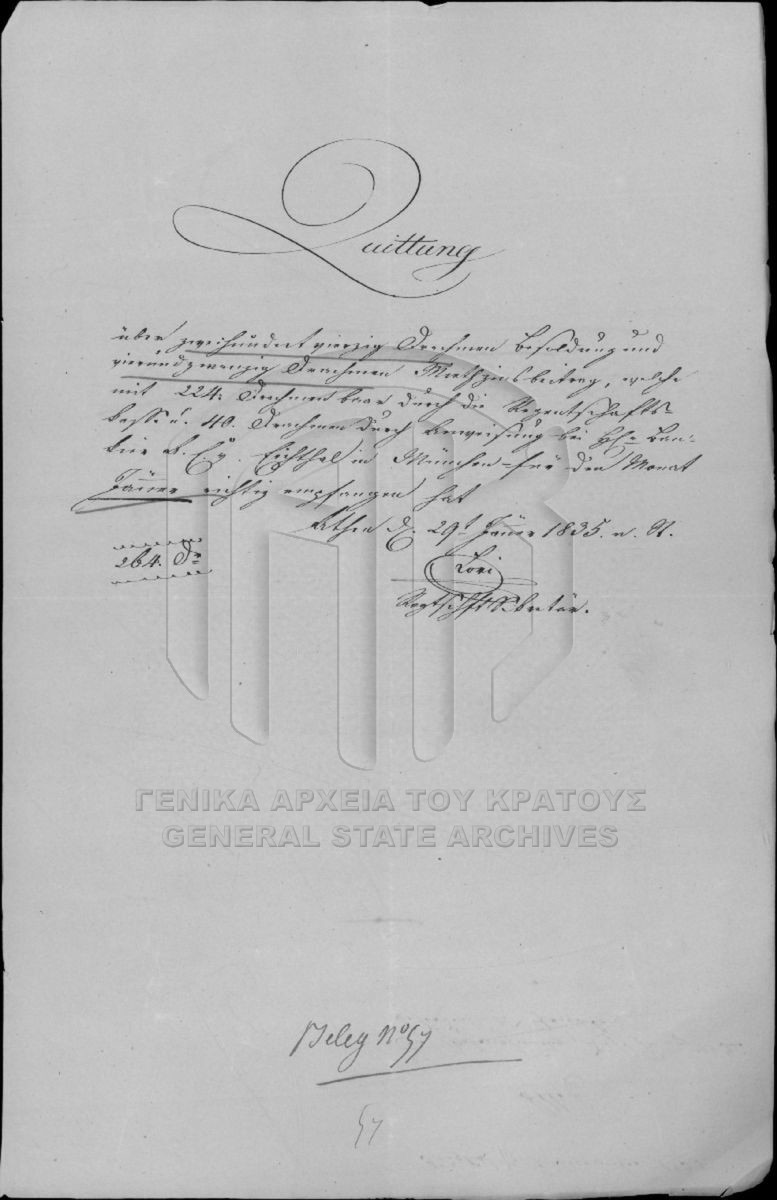 Quittung
über zweihundert vierzig Drachmen Besoldung und
vierundzwanzig Drachmen Miethzinsbeitrag, welche
mit 224. Drachmen baar durch die Regentschafts-
kasse u. 40. Drachmen durch Anweisung bei Hrn Ban-
kier v. Eichthal in München für den Monat
Jänner richtig empfangen hat
Athen d. 29t Jänner 1835. n. St.
264. Dr
Lori
Regtschftssekretär.
ΓΕΝΙΚΑ ΑΡΧΕΙΑ ΤΟΥ ΚΡΑΤΟΥΣ
GENERAL STATE ARCHIVES
Beleg No 57
57